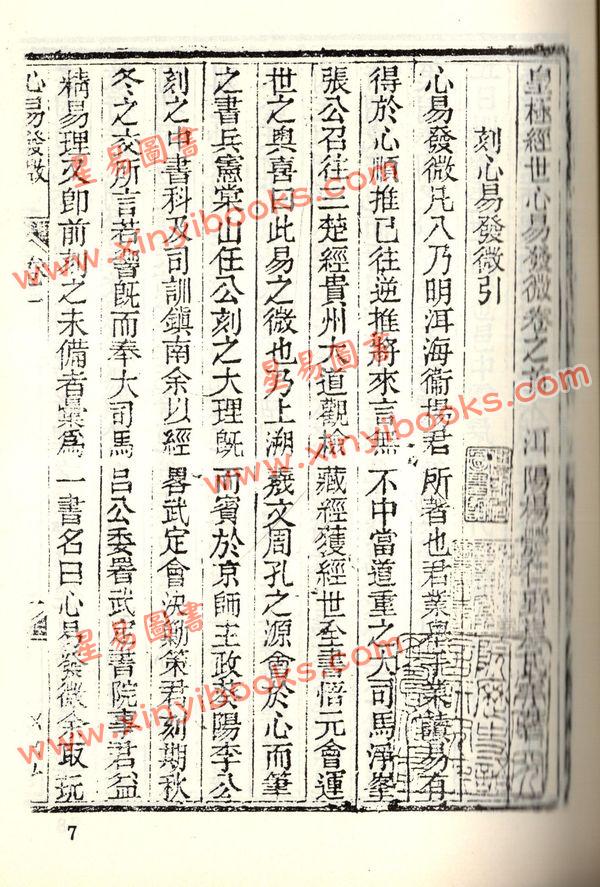 皇極經世心易發微卷之 洱陽楊
刻心易發微引
心易發微凡八乃明洱海衞揚君所著也君業舉子業讀易有
得於心順推已往逆推將來言無不中當道重之大司馬淨峯
張公召往三楚經貴州大道觀檢藏經獲經世全書悟元會運
世之奧喜曰此易之微也乃上溯羲文周孔之源會於心而筆
之書兵憲棠山任公刻之大理旣而賓於京師主政葵陽李公
刻之中書科及司訓鎮南余以經畧武定會決勦策君刻期秋
冬之交所言若響旣而奉大司馬呂公委署武定書院事君益
精易理又卽前刻之未備者彙爲一書名曰心易發微余取玩
心易發微
7
星易圖書
www.xinyibooks.com
星易圖書
www.xinyibooks.com
星易圖書
www.xinyibooks.com
星易圖書
www.xinyibooks.com